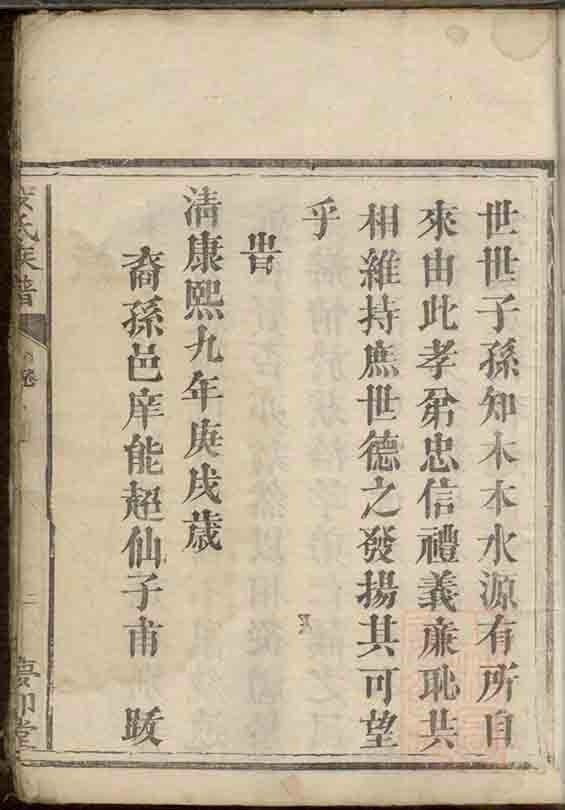 世世子孫知木本水源有所自
來由此孝弟忠信禮義廉恥共
相維持庶世德之發揚其可望
乎
旹
清康熙九年庚戌歲
裔孫邑庠能超仙子甫 跋
氏族譜
卷
二
夢卯堂